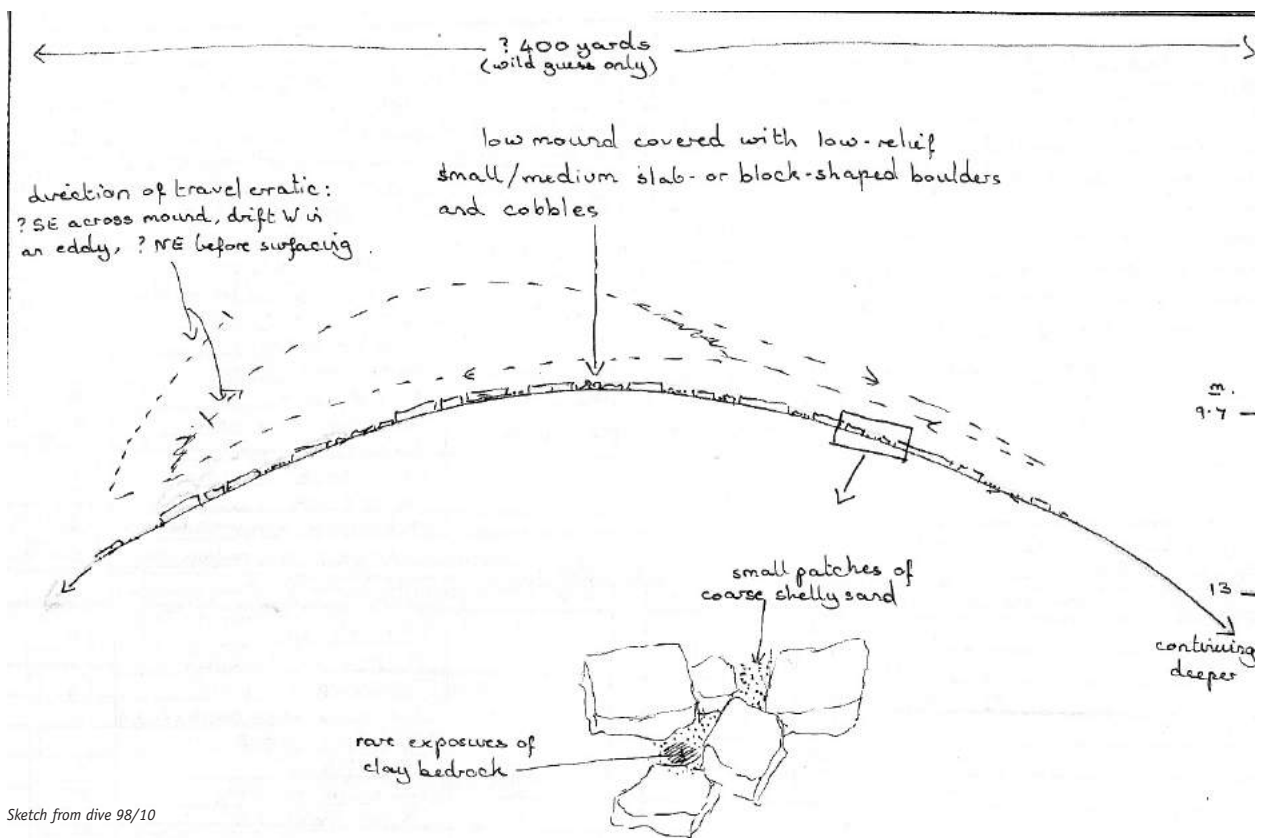 ? 400 yards
(wild guess only)
low mound covered with low-relief
small/medium slab- or block-shaped boulders
and cobbles
direction of travel erratic:
? SE across mound, drift W in
an eddy, ? NE before surfacing.
m.
9.7
13
continuing
deeper
small patches of
coarse shelly sand
rare exposures of
clay bedrock
Sketch from dive 98/10